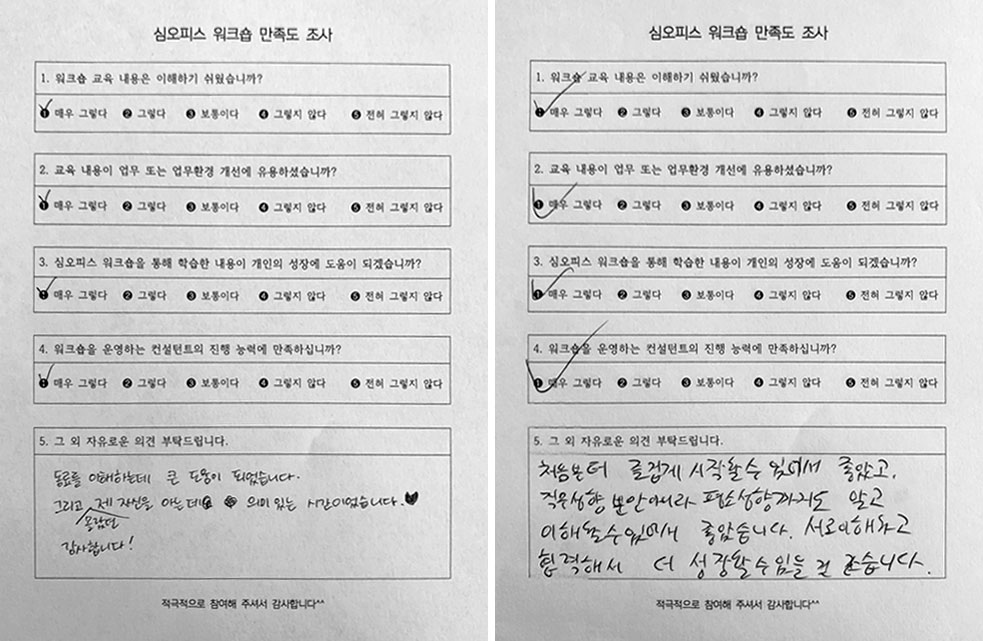 심오피스 워크숍 만족도 조사
1. 워크숍 교육 내용은 이해하기 쉬웠습니까?
❶ 매우 그렇다 ❷ 그렇다 ❸ 보통이다 ❹ 그렇지 않다 ❺ 전혀 그렇지 않다
2. 교육 내용이 업무 또는 업무환경 개선에 유용하셨습니까?
❶ 매우 그렇다 ❷ 그렇다 ❸ 보통이다 ❹ 그렇지 않다 ❺ 전혀 그렇지 않다
3. 심오피스 워크숍을 통해 학습한 내용이 개인의 성장에 도움이 되겠습니까?
❶ 매우 그렇다 ❷ 그렇다 ❸ 보통이다 ❹ 그렇지 않다 ❺ 전혀 그렇지 않다
4. 워크숍을 운영하는 컨설턴트의 진행 능력에 만족하십니까?
❶ 매우 그렇다 ❷ 그렇다 ❸ 보통이다 ❹ 그렇지 않다 ❺ 전혀 그렇지 않다
5. 그 외 자유로운 의견 부탁드립니다.
동료를 이해하는데 큰 도움이 되었습니다.
그리고 제 자신을 아는데 의미 있는 시간이었습니다.♥
몰랐던
감사합니다!
적극적으로 참여해 주셔서 감사합니다^^
심오피스 워크숍 만족도 조사
1. 워크숍 교육 내용은 이해하기 쉬웠습니까?
❶ 매우 그렇다 ❷ 그렇다 ❸ 보통이다 ❹ 그렇지 않다 ❺ 전혀 그렇지 않다
2. 교육 내용이 업무 또는 업무환경 개선에 유용하셨습니까?
❶ 매우 그렇다 ❷ 그렇다 ❸ 보통이다 ❹ 그렇지 않다 ❺ 전혀 그렇지 않다
3. 심오피스 워크숍을 통해 학습한 내용이 개인의 성장에 도움이 되겠습니까?
❶ 매우 그렇다 ❷ 그렇다 ❸ 보통이다 ❹ 그렇지 않다 ❺ 전혀 그렇지 않다
4. 워크숍을 운영하는 컨설턴트의 진행 능력에 만족하십니까?
❶ 매우 그렇다 ❷ 그렇다 ❸ 보통이다 ❹ 그렇지 않다 ❺ 전혀 그렇지 않다
5. 그 외 자유로운 의견 부탁드립니다.
처음부터 즐겁게 시작할 수 있어서 좋았고,
직무성향 뿐만아니라 평소성향까지도 알고
이해할 수 있어서 좋았습니다. 서로이해하고
협력해서 더 성장할 수 있을 것 같습니다.
적극적으로 참여해 주셔서 감사합니다^^